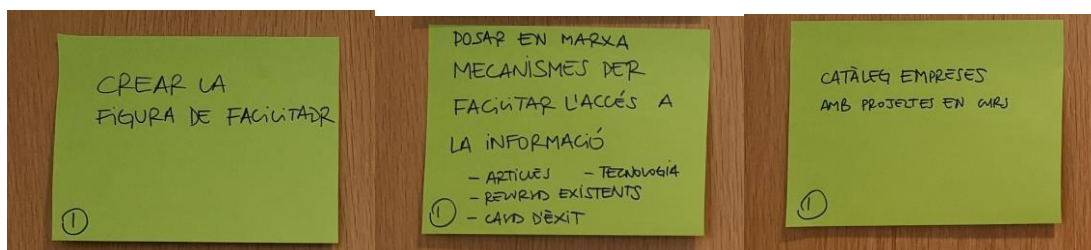 CREAR LA
FIGURA DE FACILITADR
①
POSAR EN MARXA
MECANISMES PER
FACILITAR L'ACCÉS A
LA INFORMACIÓ
- ARTICLES - TECNOLOGIA
- RECURSOS EXISTENTS
① - CASOS D'ÈXIT
CATÀLEG EMPRESES
AMB PROJECTES EN CURS
①